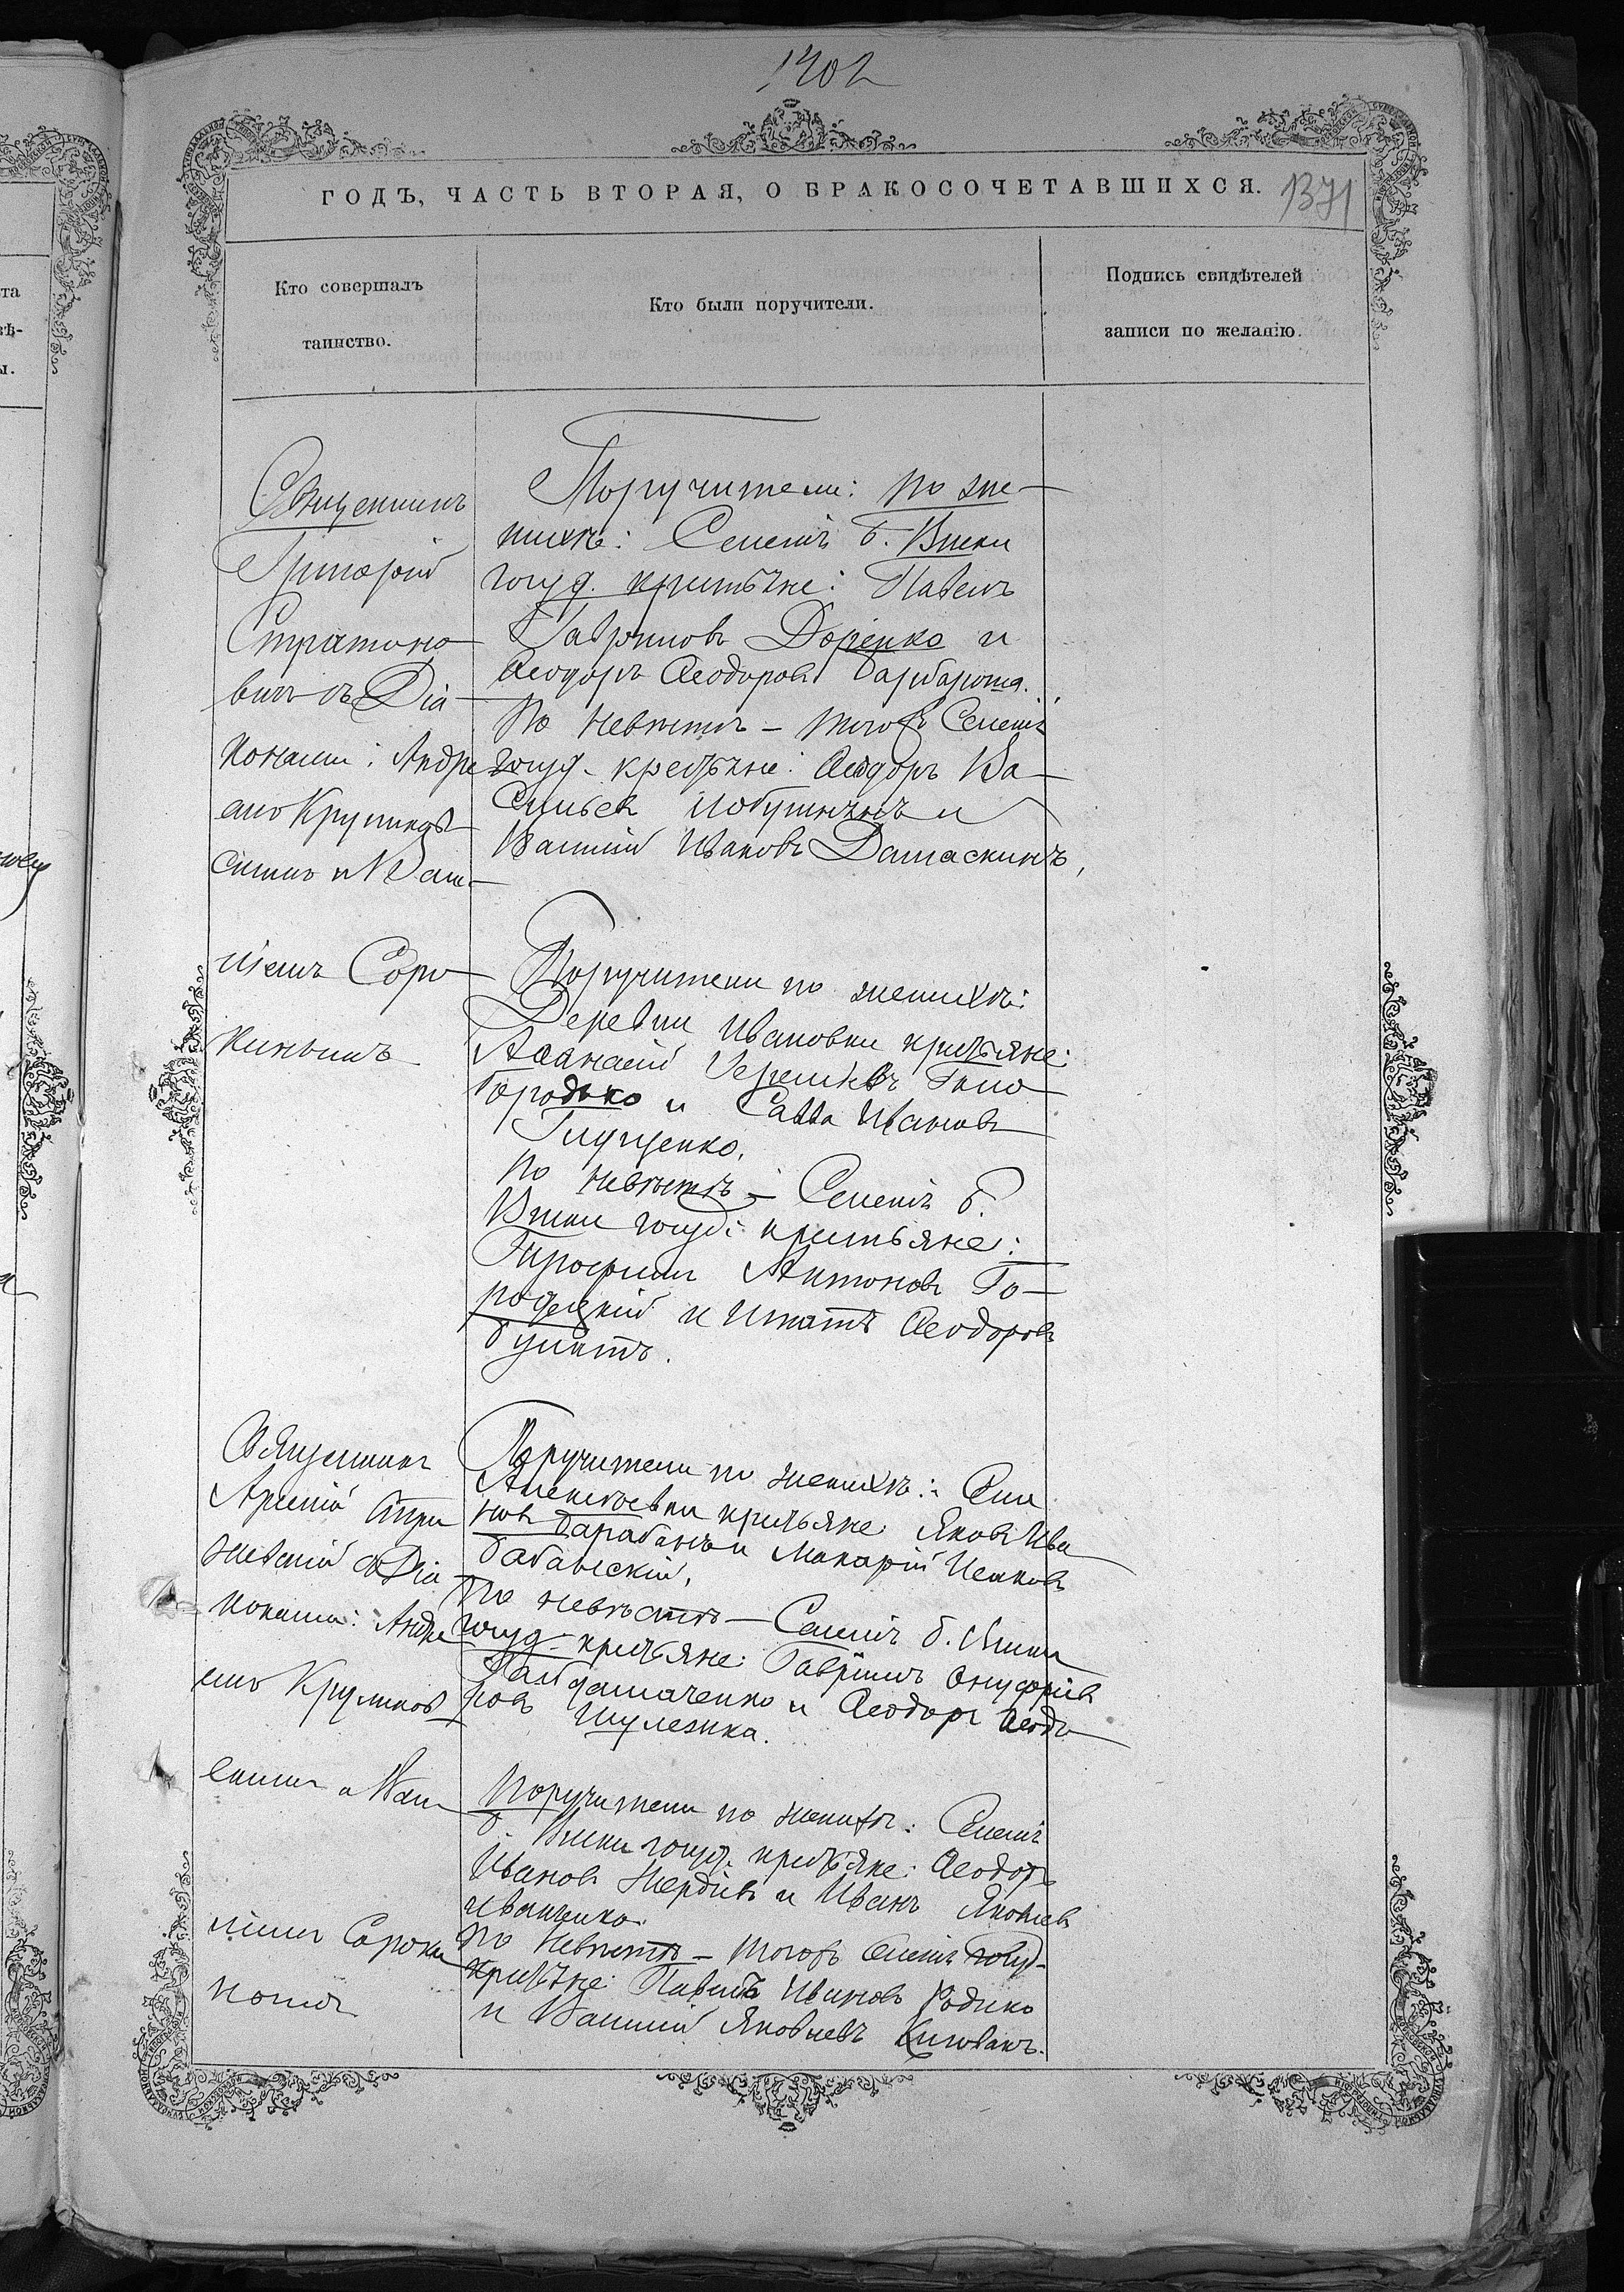 1402
ГОДЪ, ЧАСТЬ ВТОРАЯ, О БРАКОСОЧЕТАВШИХСЯ.
1371
Кто совершалъ
таинство.
Кто были поручители.
Подпись свидѣтелей
записи по желанію.
Священникъ
Григорій
Стратоно
вичъ съ Діа
конами: Андре
емъ Крупиков
симъ и Васи
ліемъ Соро
кинымъ
Поручители: по же
нихѣ: Селенія б. Виски
госуд. крестьяне: Павелъ
Гавріиловъ Доренко и
Ѳеодоръ Ѳеодоровъ Барбароша.
По невѣстѣ - тогожъ Селенія
госуд. крестьяне: Ѳеодоръ Ва
сильевъ и
Василій Ивановъ Дамаскинъ,
Поручители по женихѣ:
Деревни Ивановки крестьяне:
Аѳанасій
и Савва Ивановъ
Глущенко.
По невѣстѣ - Селенія б.
Виски госуд. крестьяне:
Трофимъ Антоновъ Го
родецкій и Игнатъ Ѳеодоровъ
Священникъ
Арсеній
съ Діа
конами: Андре
емъ Крупиков
симъ и Васи
ліемъ Сороки
нымъ
Поручители по женихѣ: Села
Алексѣевки крестьяне Яковъ Ива
новъ Барабанъ и Макарій
Бабанскій,
По невѣстѣ - Селенія б. Виски
госуд. крестьяне: Гавріилъ Онуфріевъ
Гайдамаченко и Ѳеодоръ Ѳеодо
ровъ Шулежка.
Поручители по женихѣ: Селенія
б. Виски госуд. крестьяне: Ѳеодоръ
Ивановъ Жердевъ и Иванъ Яковлевъ
Иващенко.
По невѣстѣ - тогожъ Селенія госуд.
крестьяне: Павелъ Ивановъ Родико
и Василій Яковлевъ